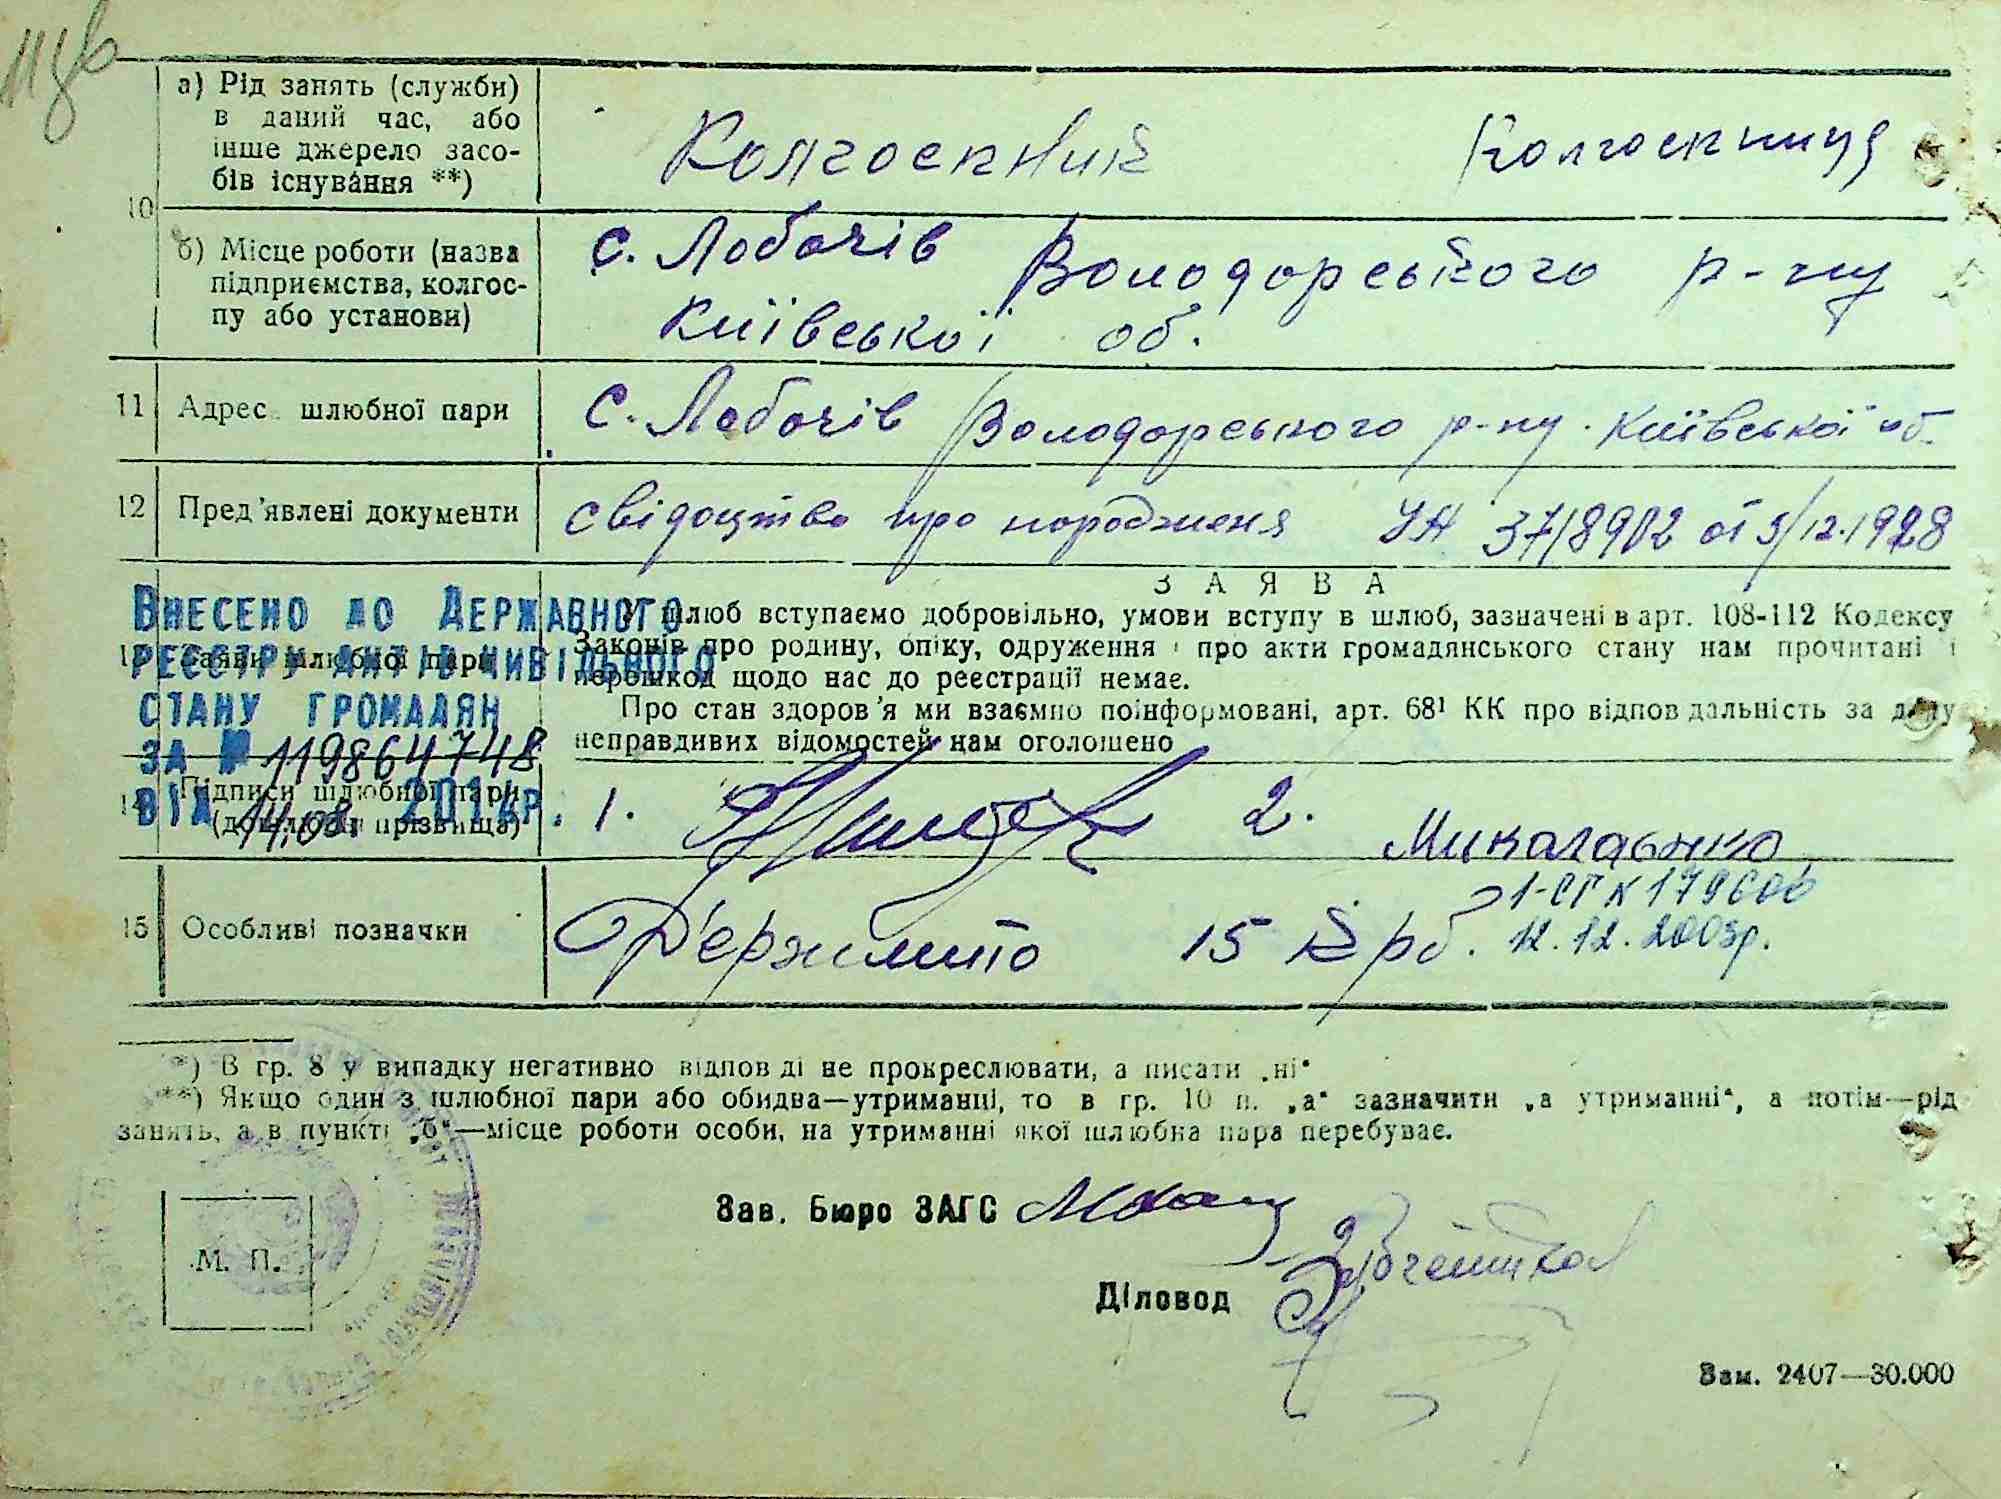 10
а) Рід занять (служби)
в даний час, або
інше джерело засо-
бів існування **)
Колгоспник Колгоспниця
б) Місце роботи (назва
підприємства, колгос-
пу або установи)
с. Лобачів Володорського р-ну
Київської об.
11 Адрес шлюбної пари
с. Лобачів Володорського р-ну Київської об.
12 Пред'явлені документи
свідоцтво про народженя УА
З А Я В А
У шлюб вступаємо добровільно, умови вступу в шлюб, зазначені в арт. 108-112 Кодексу
Законів про родину, опіку, одруження і про акти громадянського стану нам прочитані і
перешкод щодо нас до реєстрації немає.
Про стан здоров'я ми взаємно поінформовані, арт. 68¹ КК про відпов дальність за дачу
неправдивих відомостей нам оголошено
13 Заяви шлюбної пари
Внесено до Державного
реєстру актів цивільного
стану громадян
за № 11986 4748
від 14.08. 2014р.
14 Підписи шлюбної пари
(дошлюбні прізвища)
1. 2. Миколаенко
15 Особливі позначки
Держмито 15 крб.
1-СГК 179606
12.12.2003р.
*) В гр. 8 у випадку негативно відпов ді не прокреслювати, а писати „ні“
**) Якщо один з шлюбної пари або обидва—утриманці, то в гр. 10 п. „а“ зазначити „а утриманні“, а потім—рід
занять, а в пункті „б“—місце роботи особи, на утриманні якої шлюбна пара перебуває.
Зав. Бюро ЗАГС
М. П.
Діловод
Зам. 2407—30.000